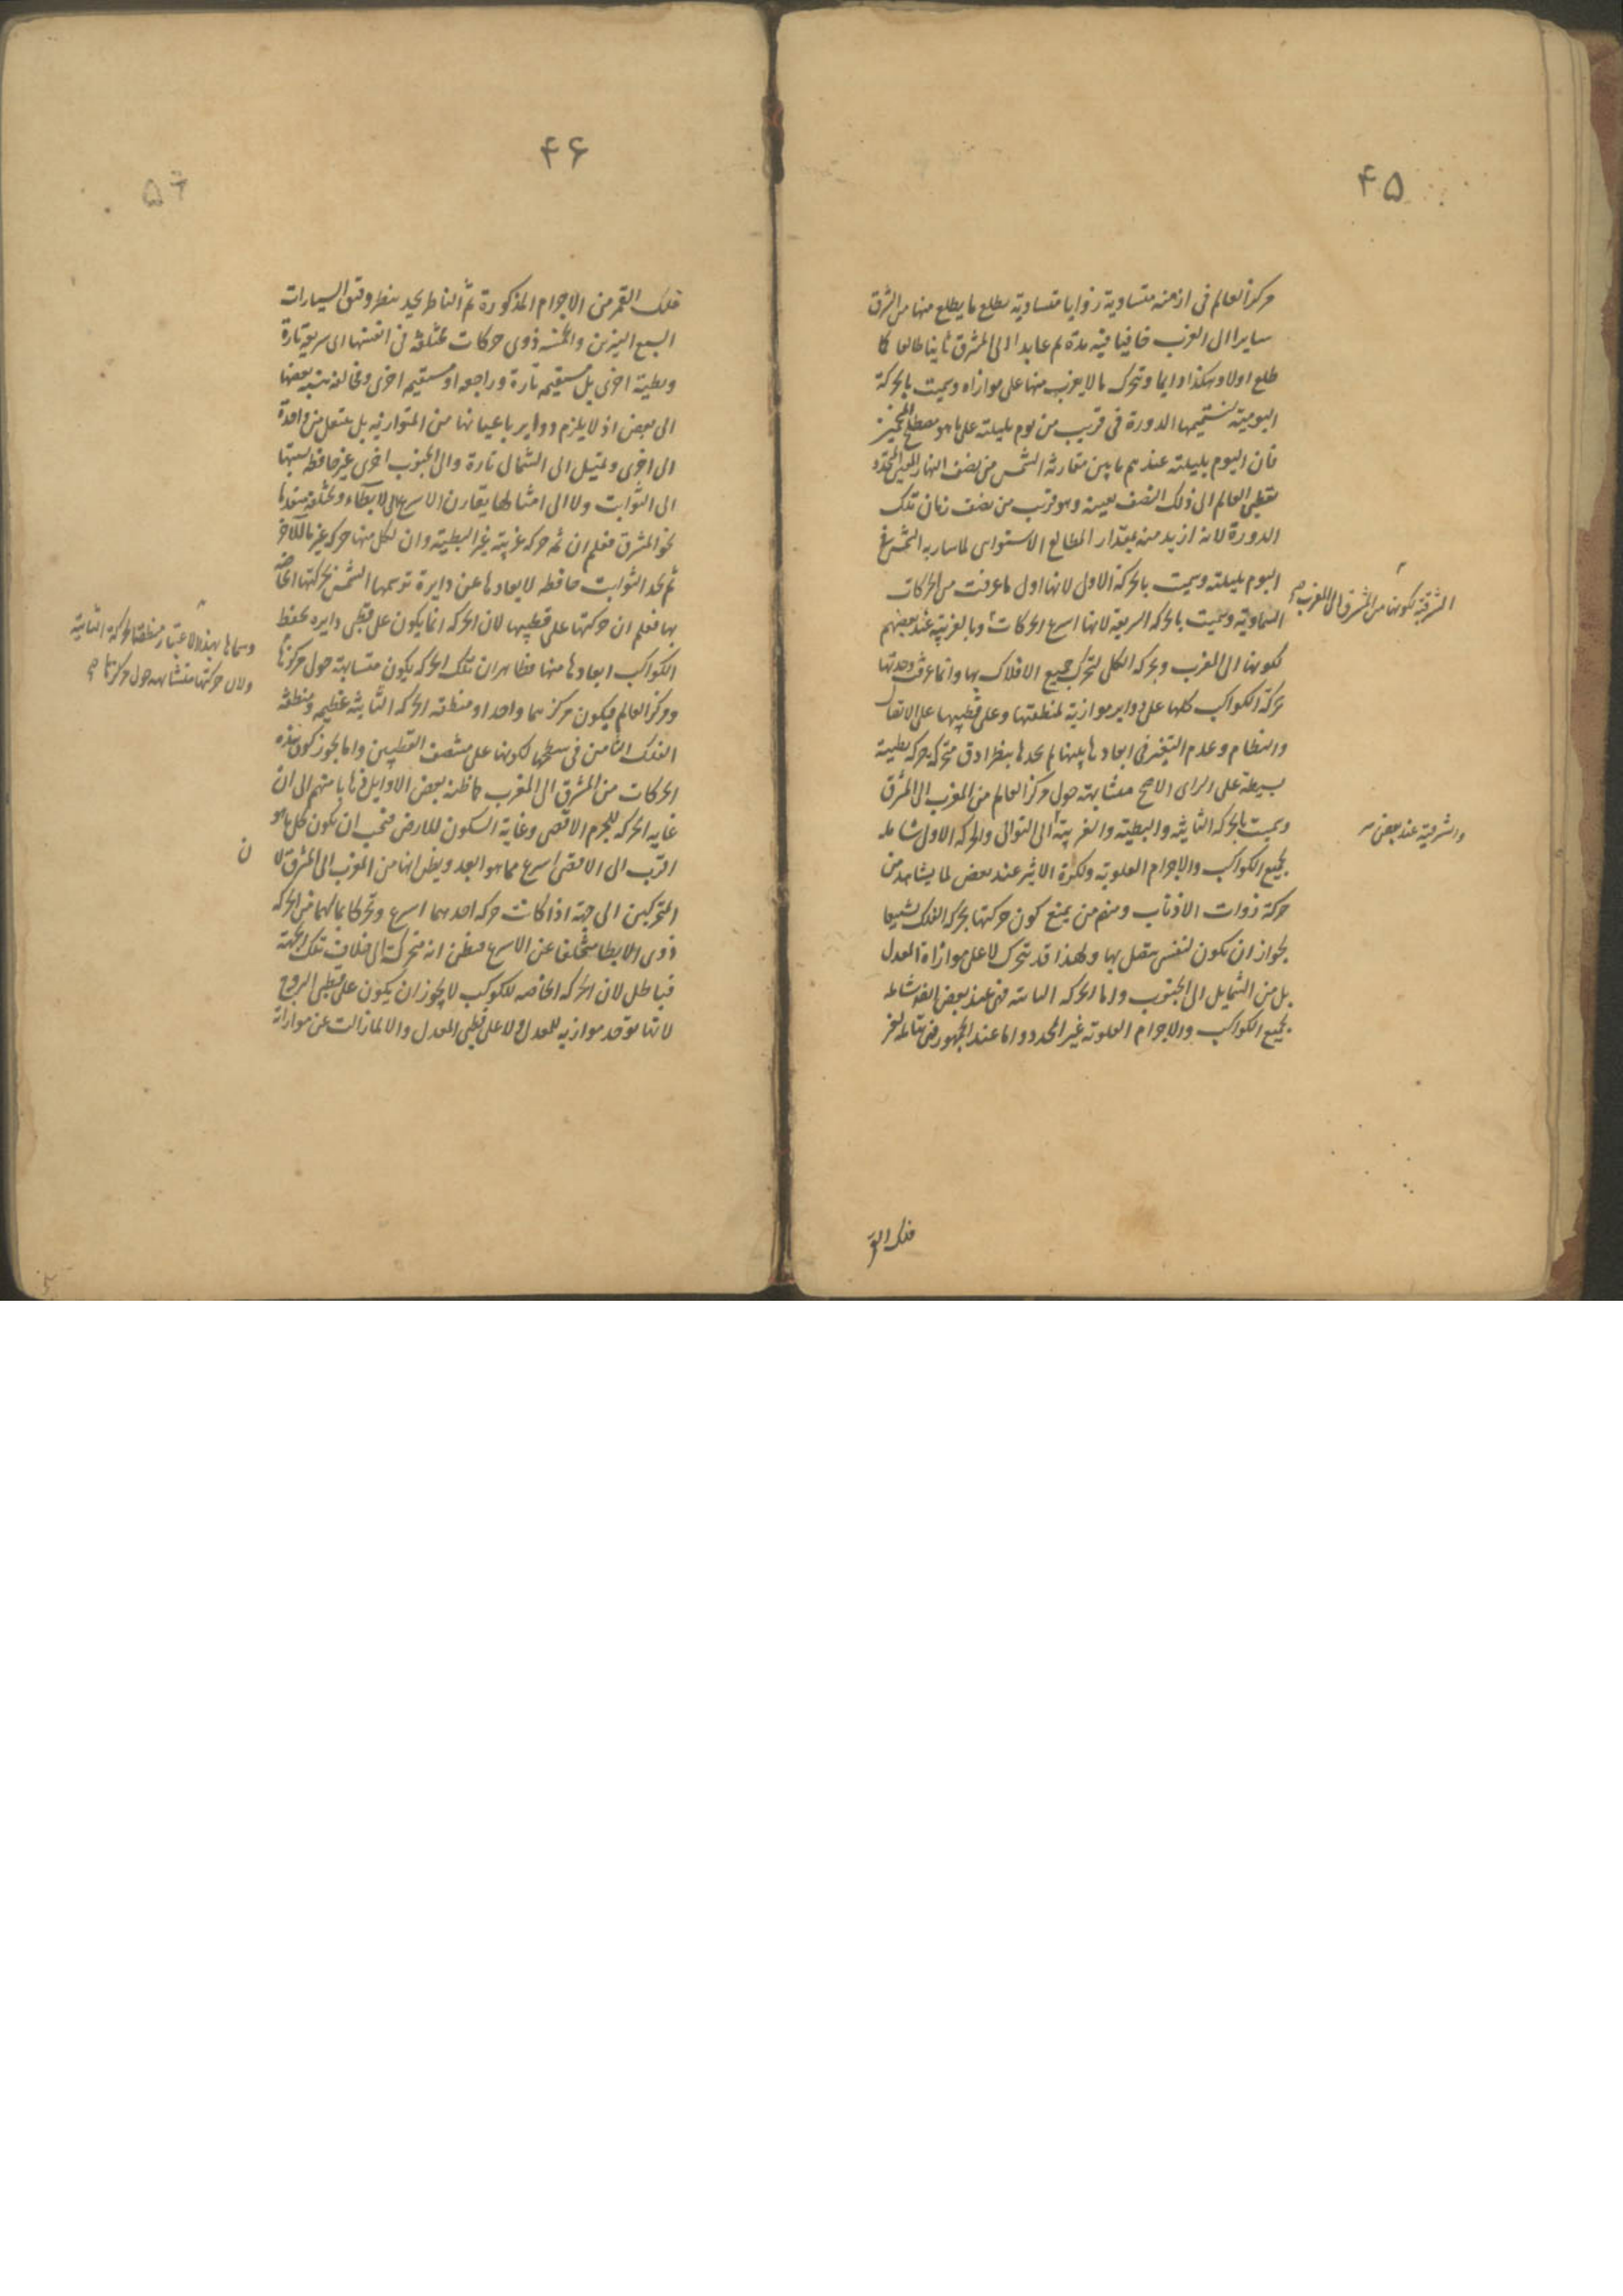 ۴۵
مركز العالم فى ازمنه متساوية زوايا متساوية يطلع ما يطلع منها من الشرق
سايرا الى الغرب خافيا فيه مدة ثم عايدا الى المشرق ثانيا طالعا كما
طلع اولا وهكذا دايما وتتحرك ما لا يغرب منها على موازاه وسميت بالحركة
اليومية لتتميمها الدورة فى قريب من يوم بليلته على ما هو مصطلح المنجمين
فان اليوم بليلته عندهم ما بين مفارقة الشمس من نصف النهار
بقطبى العالم الى ذلك النصف بعينه وهو قريب من نصف زمان تلك
الدورة لانه ازيد منه بمقدار المطالع الاستوائى لما سار به الشمس فى
اليوم بليلته وسميت بالحركة الاولى لانها اول ما عرفت من الحركات
السماوية وسميت بالحركه السريعة لانها اسرع الحركات وبالغربية عند بعضهم
الشرقية لكونها من المشرق الى المغرب صح
لكونها الى المغرب وبحركه الكل لتحرك جميع الافلاك بها وانما عرفت وحدتها
بحركة الكواكب كلها على دواير موازية لمنطقتها وعلى قطبيها على الاتصال
والنظام وعدم التغير فى ابعادها بينها ثم نجدها بنظر ادق متحركة بحركه بطيئة
بسيطة على الراى الاصح متشابهة حول مركز العالم من المغرب الى المشرق
وسميت بالحركه الثانية والبطيئة والغربية الى التوالى والحركه الاولى شاملة
والشرقية عند بعض
لجميع الكواكب والاجرام العلوية ولكرة الاثير عند بعض لما يشاهد من
حركة ذوات الاذناب ومنهم من يمنع كون حركتها بحركه الفلك تشييعا
لجواز ان يكون لنفس يتصل بها ولهذا قد يتحرك لا على موازاة المعدل
بل من الشمال الى الجنوب واما الحركه الثانية فهى عند بعض ايضا شاملة
لجميع الكواكب والاجرام العلوية غير المحدد واما عند الجمهور فهى شاملة لغير
فلك القمر
۴۶
فلك القمر من الاجرام المذكورة ثم الناظر يجد بنظر وفق السيارات
السبع النيرين والخمسه ذوى حركات مختلفة فى انفسها اى سريعة تارة
وبطيئة اخرى بل مستقيمه تارة وراجعه او مستقيمه اخرى ومخالفة نسبة بعضها
الى بعض اذ لا يلزم دواير باعيانها من المتوازيه بل ينتقل من واحدة
الى اخرى وتميل الى الشمال تارة والى الجنوب اخرى غير حافظة نسبتها
الى الثوابت ولا الى امثالها يقارن الاسرع الى الابطاء
نحو المشرق فعلم ان ثم حركه غربية غير البطيئة وان لكل منها حركه غير ما للاخر
ثم نجد الثوابت حافظه لابعادها عن دايرة ترسمها الشمس بحركتها الخاصه
بها فعلم ان حركتها على قطبيها لان الحركه انما يكون على قطبى دايره يحفظ
وسماها بهذا الاعتبار منطقة الحركه الثانية
الكواكب ابعادها منها فظاهر ان تلك الحركه يكون متشابهة حول مركزها
ولان حركتها متشابهه حول مركزها صح
ومركز العالم فيكون مركزهما واحدا ومنطقه الحركه الثانية عظيمه ومنطقة
الفلك الثامن فى سطحها لكونها على منتصف القطبين واما تجوز كون هذه
الحركات من المشرق الى المغرب كما ظنه بعض الاوايل ذهابا منهم الى ان
غايه الحركه للجرم الاقصى وغاية السكون للارض فيجب ان يكون كل ما هو
اقرب الى الاقصى اسرع مما هو ابعد ويظن انها من المغرب الى المشرق لان
المتحركين الى جهة اذا كانت حركه احدهما اسرع وتحركا بما لهما من الحركه
ذوى الابطا متخلفا عن الاسرع فيظن انه متحرك الى خلاف تلك الجهة
فباطل لان الحركه الخاصه للكوكب لا يجوز ان يكون على قطبى البروج
لانها توجد موازيه للمعدل ولا على قطبى المعدل والا لما زالت عن موازاته